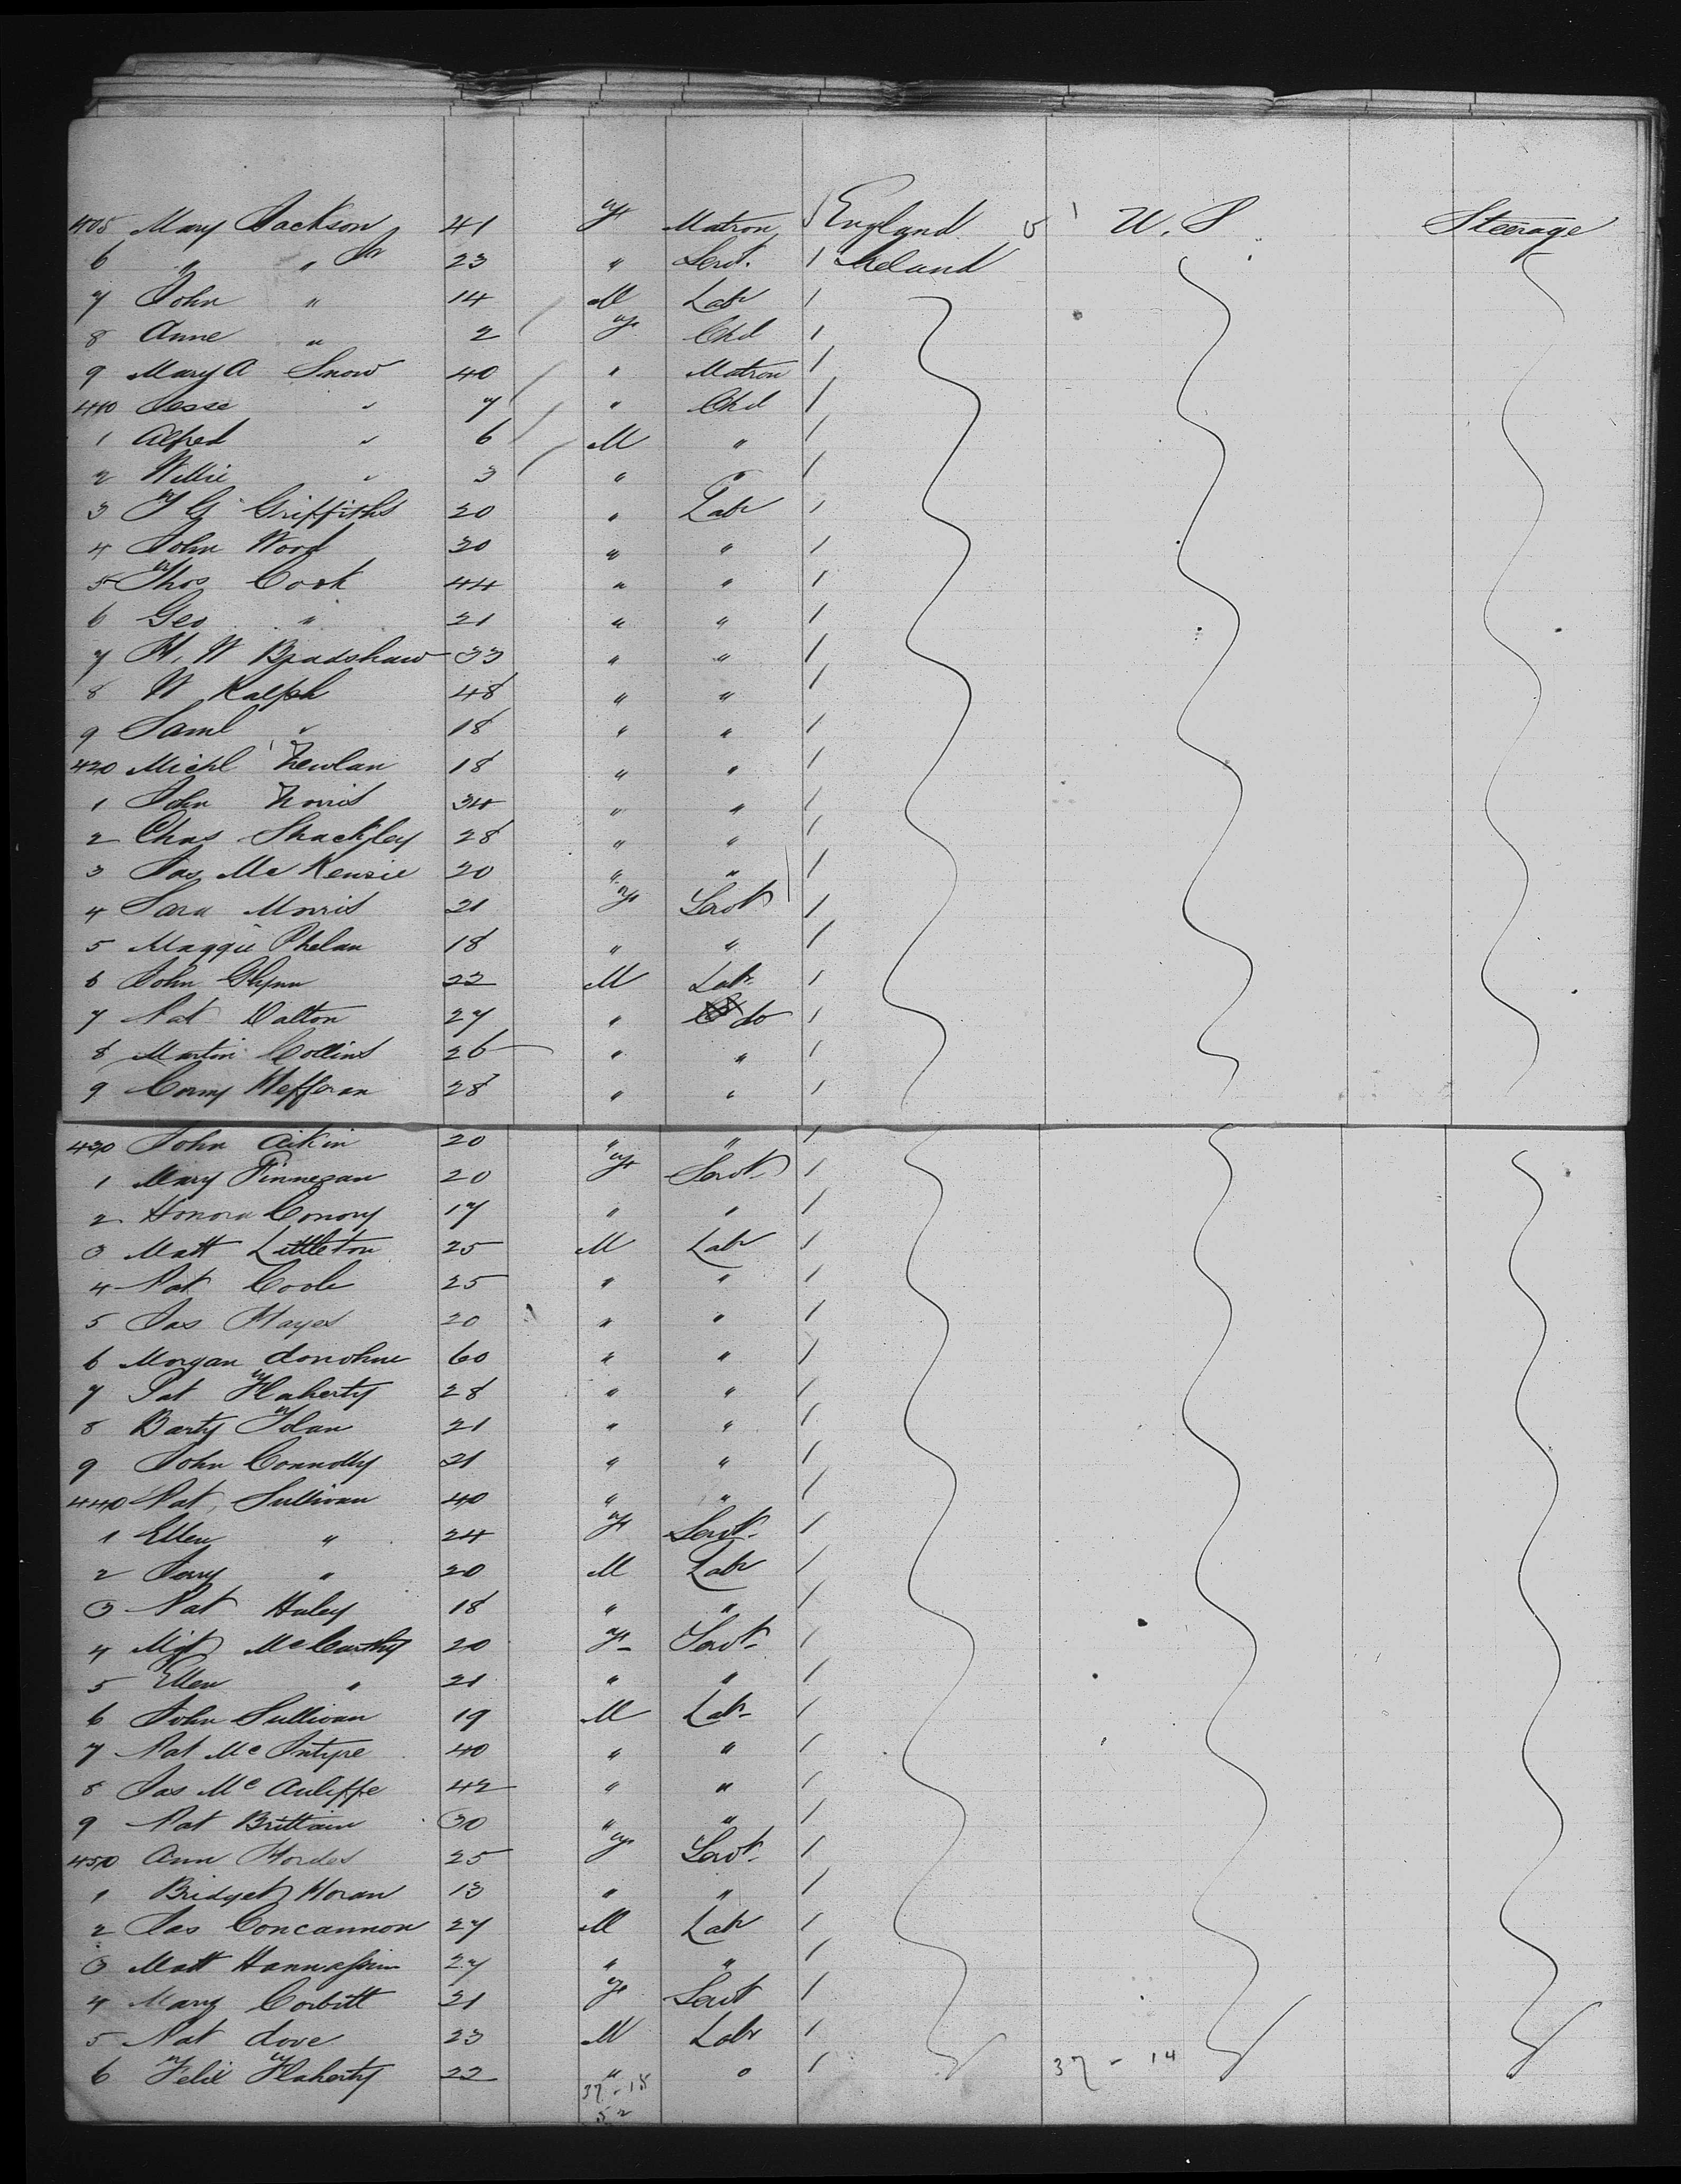 405 Mary Jackson 41 F Matron England U. S. Steerage
6 " " Jr 23 " Servt. 1 Ireland
7 John " 14 M Labr 1
8 Anne " 2 F Chd 1
9 Mary A Snow 40 " Matron 1
410 Jesse " 7 " Chd 1
1 Alfred " 6 M " 1
2 Willie " 3 " " 1
3 F G Griffiths 20 " Labr 1
4 John Wood 30 " " 1
5 Thos Cook 44 " " 1
6 Geo " 21 " " 1
7 H. W Bradshaw 33 " " 1
8 W Ralph 48 " " 1
9 Saml " 18 " " 1
420 Michl Newlan 18 " " 1
1 John Norris 34 " " 1
2 Chas Shackley 28 " " 1
3 Jas McKenzie 20 " " 1
4 Sara Morris 21 F Servt 1
5 Maggie Phelan 18 " " 1
6 John Glynn 22 M Labr 1
7 Pat Dalton 27 " do 1
8 Martin Collins 26 " " 1
9 Corny Hefferan 28 " " 1
430 John Aikin 20 " " 1
1 Mary Finnegan 20 F Servt. 1
2 Honora Conory 17 " " 1
3 Matt Littleton 25 M Labr 1
4 Pat Coole 25 " " 1
5 Jas Hayes 20 " " 1
6 Morgan donohue 60 " " 1
7 Pat Flaherty 28 " " 1
8 Barty Folan 21 " " 1
9 John Connolly 21 " " 1
440 Pat Sullivan 40 " " 1
1 Ellen " 24 F Servt. 1
2 Jerry " 20 M Labr 1
3 Pat Haley 18 " " 1
4 Mgt McCarthy 20 F Servt. 1
5 Ellen " 21 " " 1
6 John Sullivan 19 M Labr 1
7 Pat McIntyre 40 " " 1
8 Jas McAuliffe 42 " " 1
9 Pat Brittain 30 " " 1
450 Ann Hordes 25 F Servt. 1
1 Bridget Horan 13 " " 1
2 Jas Concannon 27 M Labr 1
3 Matt 27 " " 1
4 Mary Corbitt 21 F Servt 1
5 Pat dove 23 M Labr 1
6 Felix Flaherty 22 " " 1
37 - 15 37 - 14
52